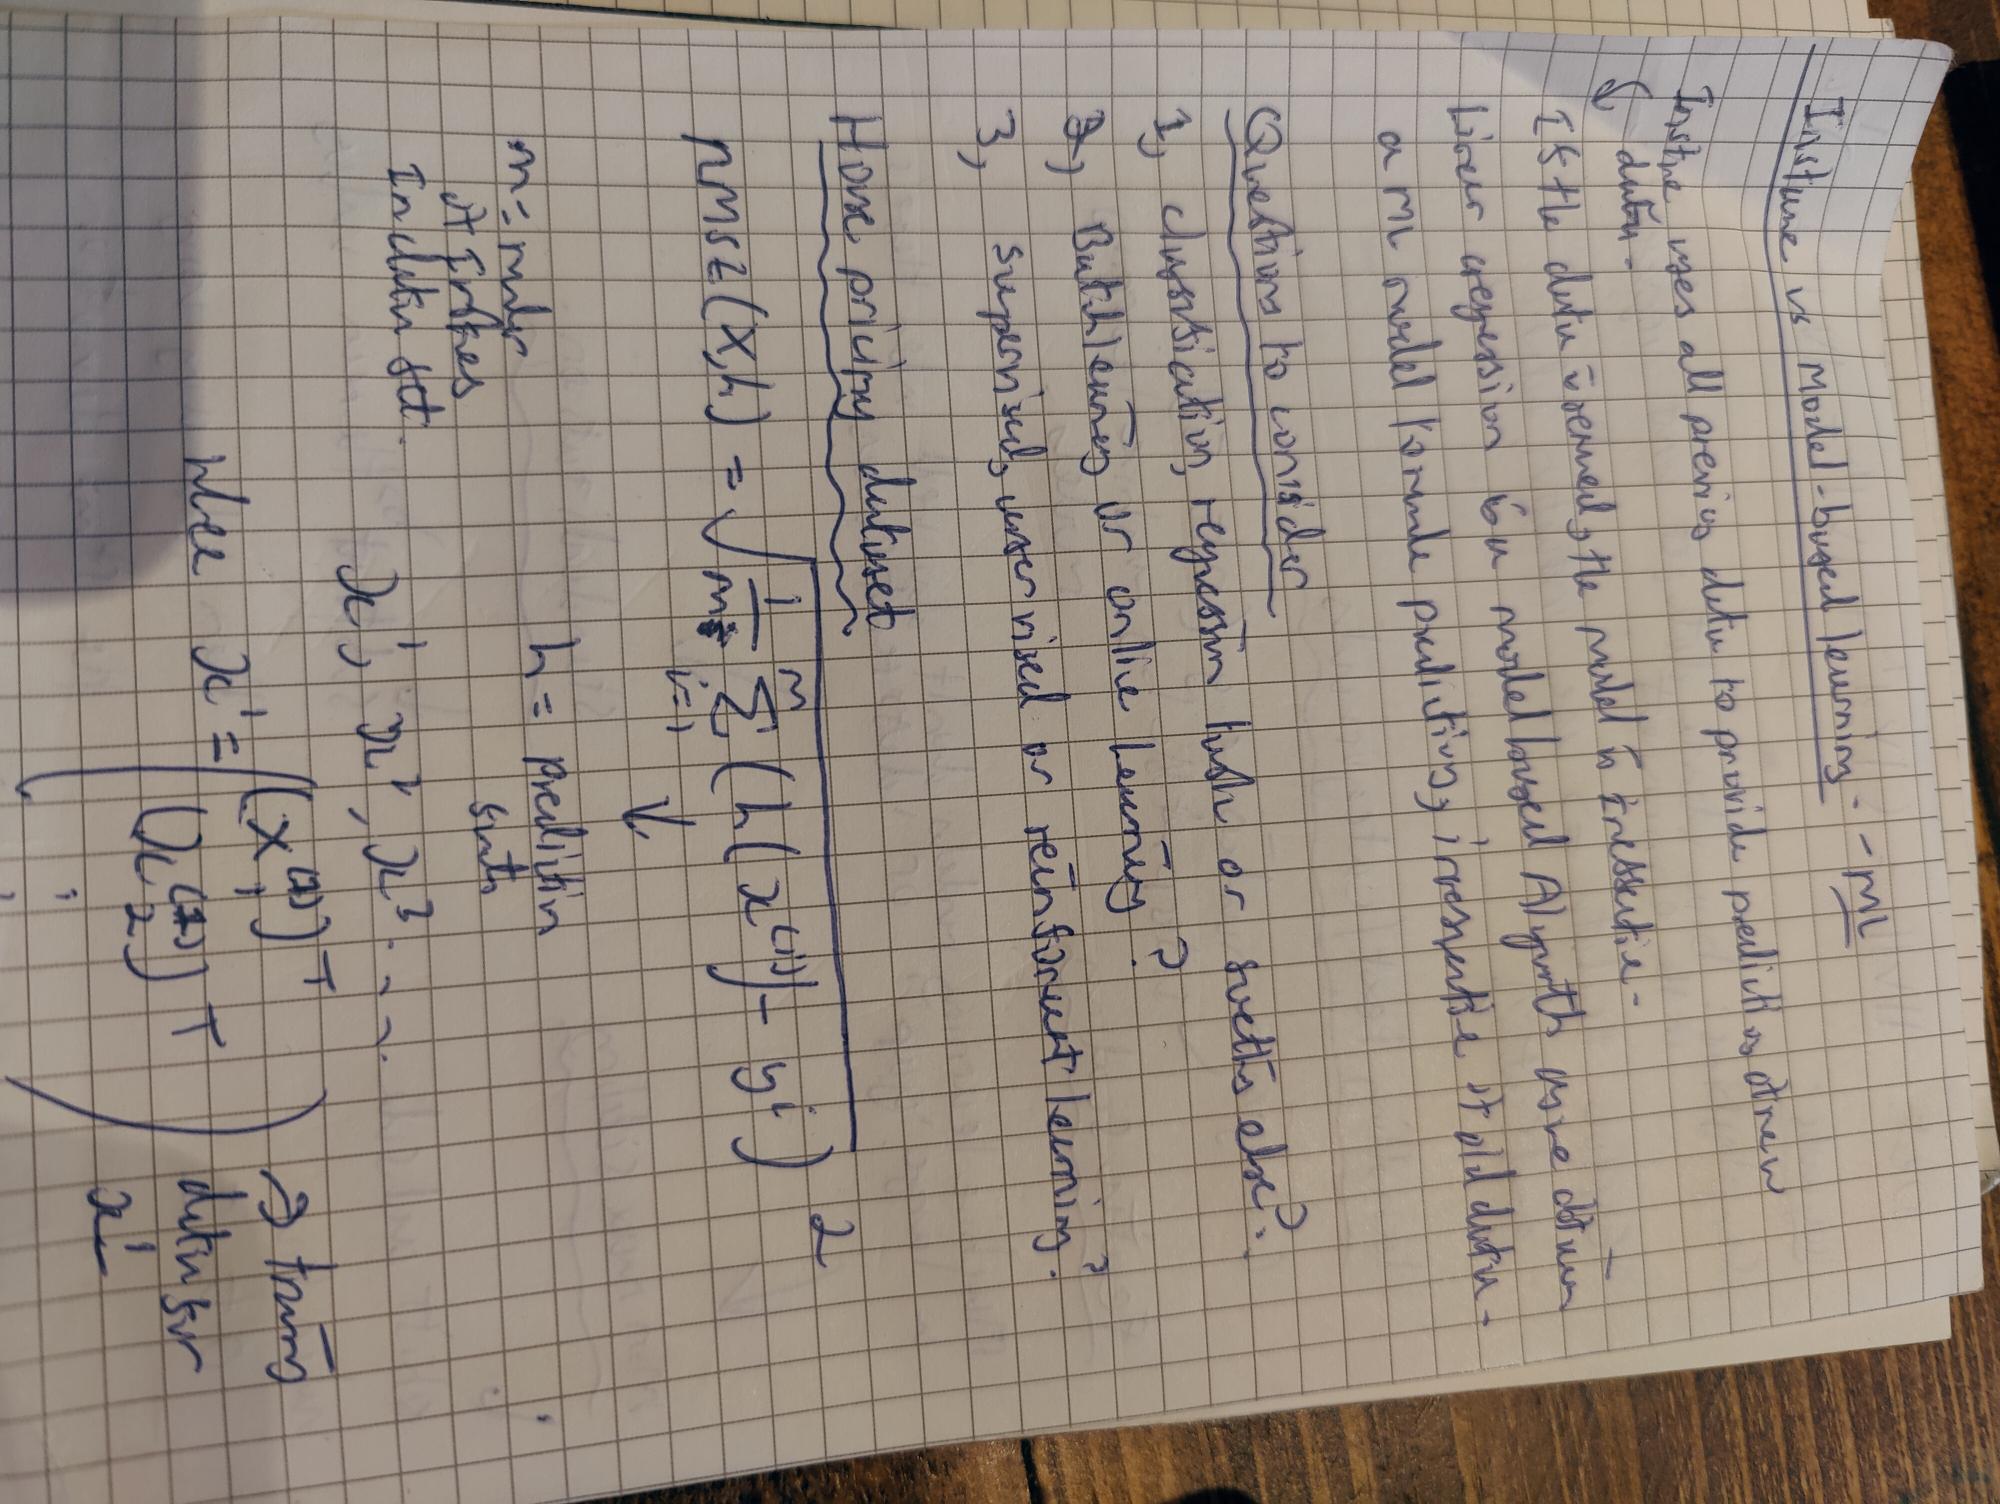 Instance vs Model-based learning. - ML
Instance uses all previous data to provide predictions of new
data.
If the data is removed, the model is ineffective.
Linear regression is a model based Algorithm as we obtain
a ML model to make predictions, irrespective of old data.
Questions to consider
1, classification, regression task or something else?
2, Batch learning or online learning?
3, supervised, unsupervised or reinforcement learning?
House pricing dataset
RMSE(X,h) = √ 1/m m Σ i=1 (h(x(i)) - yⁱ)²
m = number of instances in data set.
h = prediction
x¹, x², x³ . . . .
where x¹ = ( (x₁(1))ᵀ
(x₂(1))ᵀ
: ) → training data for x¹